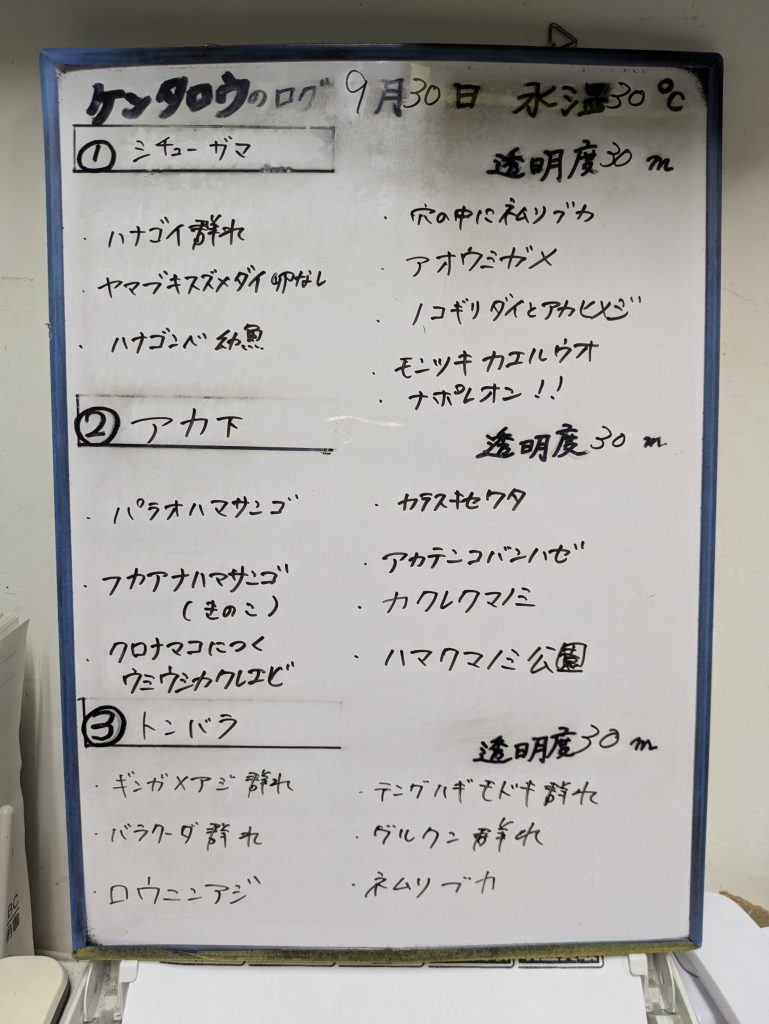 ケンタロウのログ 9月30日 水温30℃
① シチューガマ
透明度30 m
・ハナゴイ群れ
・ヤマブキスズメダイ卵なし
・ハナゴンベ 幼魚
・穴の中にネムリブカ
・アオウミガメ
・ノコギリダイとアカヒメジ
・モンツキカエルウオ
・ナポレオン!!
② アカ下
透明度30 m
・パラオハマサンゴ
・フカアナハマサンゴ
(きのこ)
・クロナマコにつく
ウミウシカクレエビ
・カラスキセワタ
・アカテンコバンハゼ
・カクレクマノミ
・ハマクマノミ公園
③ トンバラ
透明度30 m
・ギンガメアジ群れ
・バラクーダ群れ
・ロウニンアジ
・テングハギモドキ群れ
・グルクン群れ
・ネムリブカ